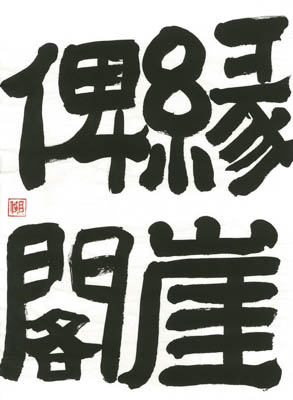 縁崖
俾閣